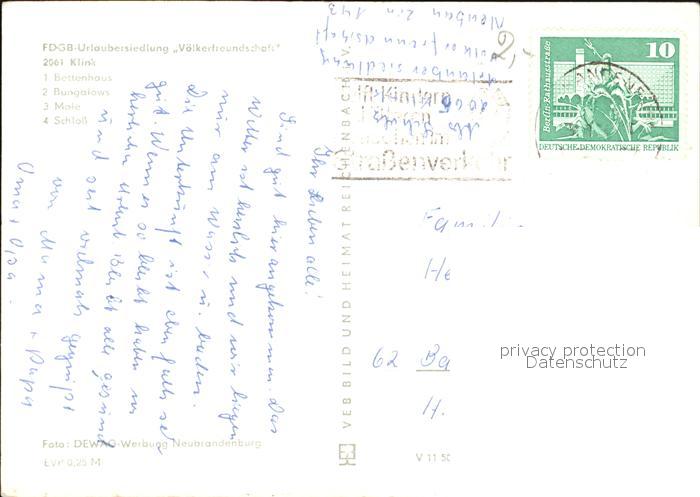 FDGB-Urlaubersiedlung „Völkerfreundschaft"
2061 Klink
1 Bettenhaus
2 Bungalows
3 Mole
4 Schloß
Ihr Lieben alle!
Sind gut hier angekommen. Das
Wetter ist herrlich und wir liegen
nur am Wasser u. baden.
Die Unterkunft ist ebenfalls sehr
gut. Wenn es so bleibt haben wir
herrlichen Urlaub. Bleibt alle gesund
und seid vielmals gegrüßt
von Mama + Papa
Oma + Opa.
Foto: DEWAG-Werbung Neubrandenburg
EVP 0,25 M
VEB BILD UND HEIMAT REICHENBACH
V 11 50
Urlaubersiedlung
Völkerfreundschaft
Kindern
Straßenverkehr
10
Berlin-Rathausstraße
DEUTSCHE DEMOKRATISCHE REPUBLIK
Famili
He
62 Ba
H.
privacy protection
Datenschutz